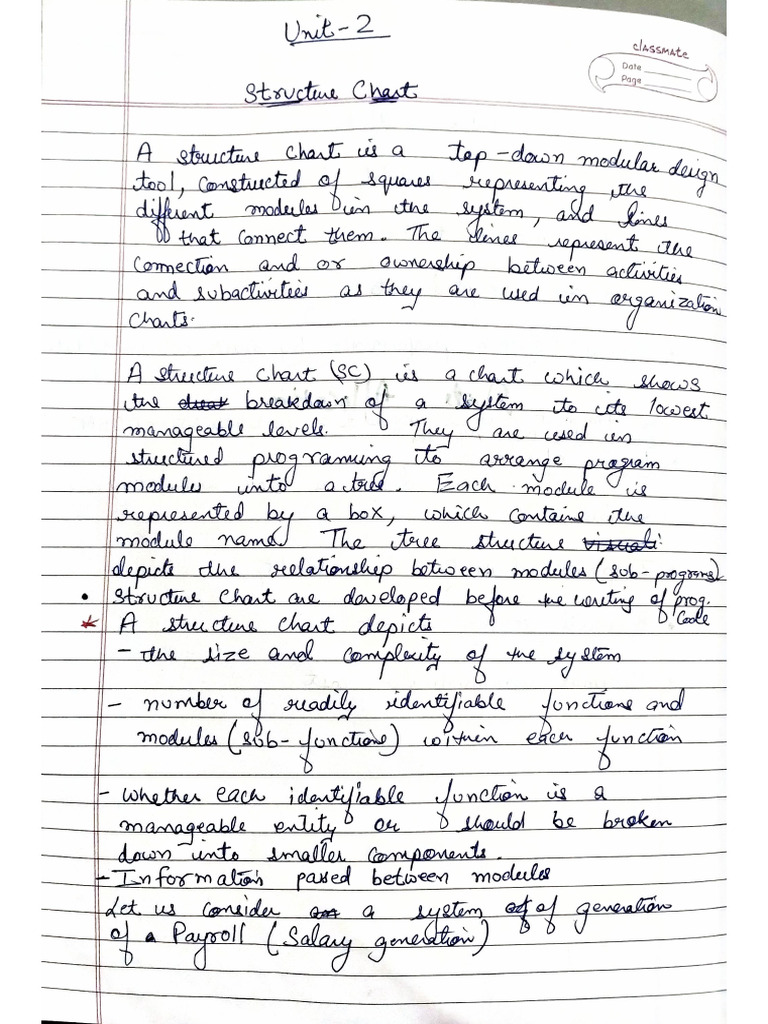 Unit-2
classmate
Date
Page
Structure Chart
A structure chart is a top-down modular design
tool, constructed of squares representing the
different modules in the system, and lines
that connect them. The lines represent the
connection and or ownership between activities
and subactivities as they are used in organization
charts.
A structure chart (SC) is a chart which shows
the breakdown of a system to its lowest
manageable levels. They are used in
structured programming to arrange program
modules into a tree. Each module is
represented by a box, which contains the
module name. The tree structure visuali
depicts the relationship between modules (sub-programs)
• Structure Chart are developed before the writing of prog.
Code
* A structure chart depicts
- the size and complexity of the system
- number of readily identifiable functions and
modules (sub-functions) within each function
- whether each identifiable function is a
manageable entity or should be broken
down into smaller components.
- Information passed between modules
Let us consider a system of generation
of a Payroll (Salary generation)